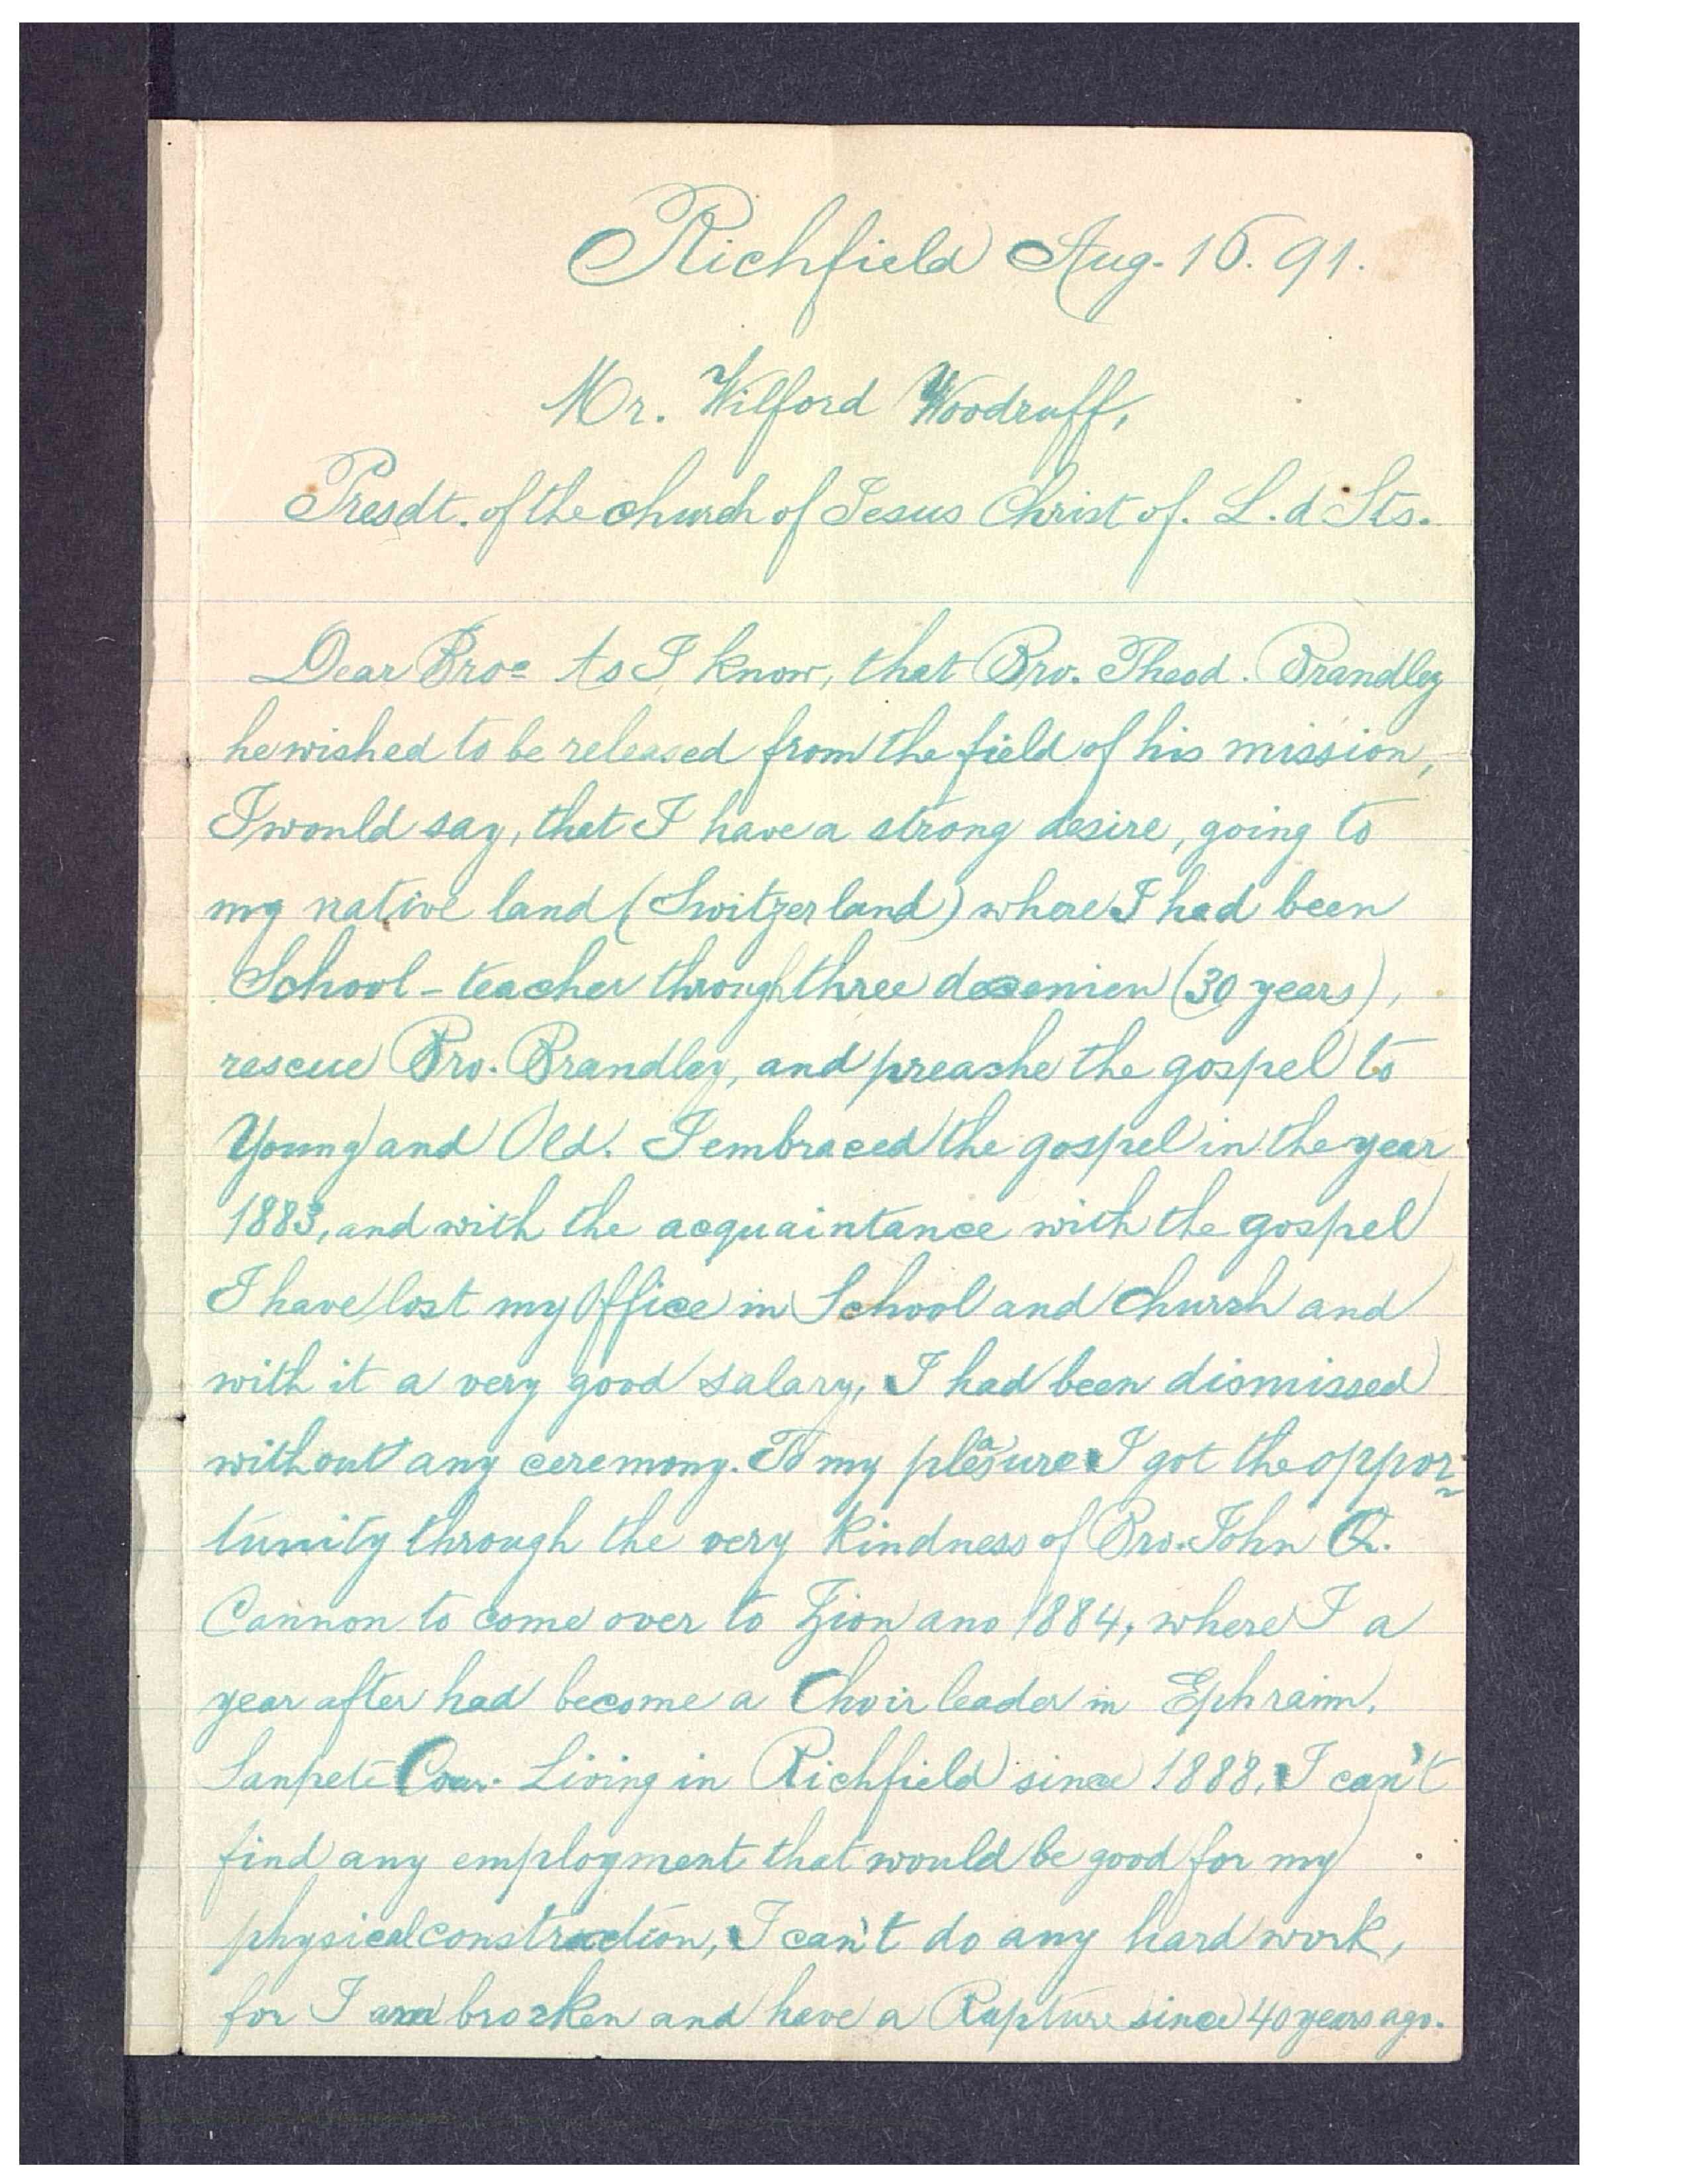 Richfield Aug. 16. 91.
Mr. Wilford Woodruff,
Presdt. of the church of Jesus Christ of. L. d Sts.
Dear Bro= As I know, that Bro. Theod. Brandley
he wished to be released from the field of his mission,
I would say, that I have a strong desire, going to
my native land (Switzerland) where I had been
School-teacher through three decenien (30 years),
rescue Bro. Brandley, and preache the gospel to
Young and Old. I embraced the gospel in the year
1883, and with the acquaintance with the gospel
I have lost my Office in School and Church and
with it a very good salary, I had been dismissed
without any ceremony. To my pleasure I got the oppor-
tunity through the very kindness of Bro. John Q.
Cannon to come over to Zion ano 1884, where I a
year after had become a Choir leader in Ephraim,
Sanpete Cou. Living in Richfield since 1888, I can't
find any employment that would be good for my
physical construction, I can't do any hard work,
for I am brocken and have a Rupture since 40 years ago.